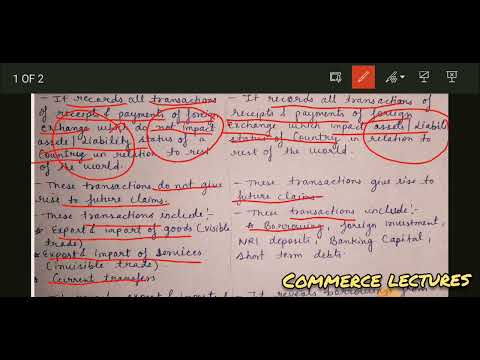 1 OF 2
- It records all transactions
of receipts & payments of foreign
exchange which do not impact
assets/liability status of a
country in relation to rest
of the world.
- These transactions do not give
rise to future claims.
- These transactions include:-
* Export & import of goods (visible
trade)
* Export & import of services
(invisible trade)
* Current transfers
- It records all transactions of
receipts & payments of foreign
exchange which impact assets/liability
status of country in relation to
rest of the world.
- These transactions give rise to
future claims.
- These transactions include:-
* Borrowing, foreign investment,
NRI deposits, Banking Capital,
Short term debts.
COMMERCE LECTURES